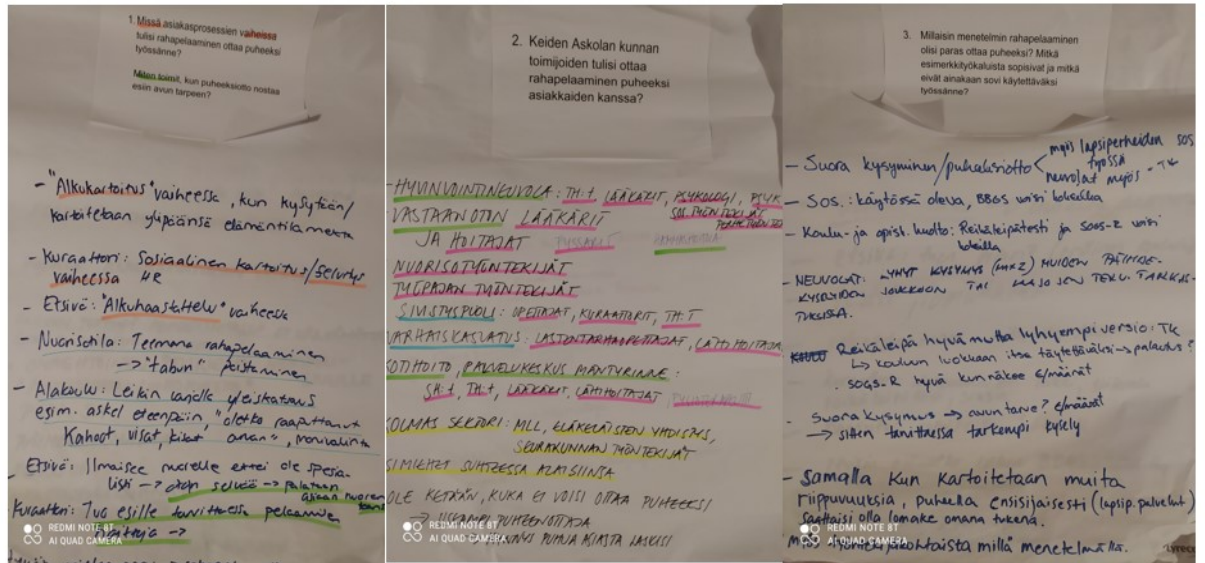 1. Missä asiakasprosessien vaiheissa
tulisi rahapelaaminen ottaa puheeksi
työssänne?
Miten toimit, kun puheeksiotto nostaa
esiin avun tarpeen?
- "Alkukartoitus" vaiheessa, kun kysytään/
kartoitetaan ylipäänsä elämäntilannetta
- Kuraattori: Sosiaalinen kartoitus/selvitys
vaiheessa HR
- Etsivä: "Alkuhaastattelu" vaiheessa
- Nuorisotila: Teemana rahapelaaminen
-> "tabun" poistaminen
- Alakoulu: Leikin varjolle yleiskatsaus
esim. askel eteenpäin, "oletko raaputtanut
Kahoot, visat, kisat, monivalinta
- Etsivä: Ilmaisee nuorelle ettei ole spesia-
listi -> otan selvää -> palataan
asiaan nuoren
kanssa
Kuraattori: Tuo esille tarvittaessa pelaamisen
REDMI NOTE 8T
AI QUAD CAMERA
2. Keiden Askolan kunnan
toimijoiden tulisi ottaa
rahapelaaminen puheeksi
asiakkaiden kanssa?
- HYVINVOINTINEUVOLA: TH:t, LÄÄKÄRIT, PSYKOLOGI, PSYK
SOS.TYÖNTEKIJÄT
PERHETYÖNTEK
VASTAANOTIN LÄÄKÄRIT
JA HOITAJAT FYSSARIT HAMMASHOITOLA
NUORISOTYÖNTEKIJÄT
TYÖPAJAN TYÖNTEKIJÄT
SIVISTYSPUOLI: OPETTAJAT, KURAATTORIT, TH:T
VARHAISKASVATUS: LASTENTARHAOPETTAJAT, LÄHIHOITAJA
KOTIHOITO, PALVELUKESKUS MÄNTYRINNE:
SH:t, TH:t, LÄÄKÄRIT, LÄHIHOITAJAT,
KOLMAS SEKTORI: MLL, ELÄKELÄISTEN YHDISTYS,
SEURAKUNNAN TYÖNTEKIJÄT
ESIMIEHET SUHTEESSA ALAISIINSA
OLE KETÄÄN, KUKA EI VOISI OTTAA PUHEEKSI
-> USEAMPI PUHEENOTTAJA
KYNNYS PUHUA ASIASTA LASKISI
REDMI NOTE 8T
AI QUAD CAMERA
3. Millaisin menetelmin rahapelaaminen
olisi paras ottaa puheeksi? Mitkä
esimerkkityökaluista sopisivat ja mitkä
eivät ainakaan sovi käytettäväksi
työssänne?
- Suora kysyminen/puheeksiotto < myös lapsiperheiden sos
työssä
neuvolat myös - TK
- Sos.: käytössä oleva, BBGS voisi kokeilla
- Koulu- ja opisk. huolto: Reikäleipätesti ja SOGS-R voisi
kokeilla
- NEUVOLAT: LYHYT KYSYMYS MUIDEN PÄIHDE-
KYSELYIDEN JOUKKOON TAI LAAJOJEN TERV. TARKAS-
TUKSISSA.
Reikäleipä hyvä mutta lyhyempi versio: TK
-> koulun luokkaan itse täytettäväksi -> palautus?
. SOGS-R hyvä kun näkee €/määrät
- Suora kysymys -> avun tarve? €/määrät
-> sitten tarvittaessa tarkempi kysely
- Samalla kun kartoitetaan muita
riippuvuuksia, puheella ensisijaisesti (lapsip. palvelut)
saattaisi olla lomake omana tukena.
Myös työntekijäkohtaista millä menetelmällä.
REDMI NOTE 8T
AI QUAD CAMERA